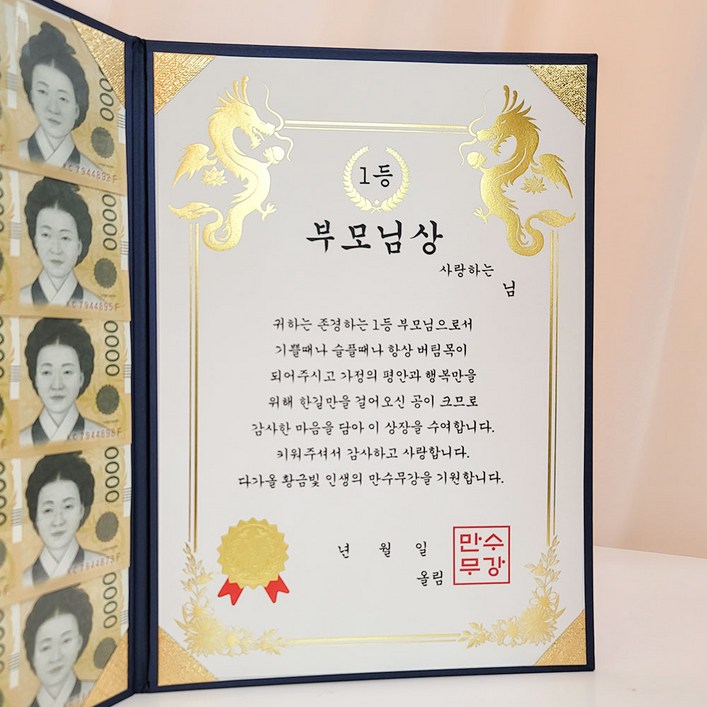 0000
KC7944892F
0000
KC7944895F
0000
0000
0000
1등
부모님상
사랑하는
님
귀하는 존경하는 1등 부모님으로서
기쁠때나 슬플때나 항상 버팀목이
되어주시고 가정의 평안과 행복만을
위해 한길만을 걸어오신 공이 크므로
감사한 마음을 담아 이 상장을 수여합니다.
키워주셔서 감사하고 사랑합니다.
다가올 황금빛 인생의 만수무강을 기원합니다.
년 월 일
올림
만수
무강